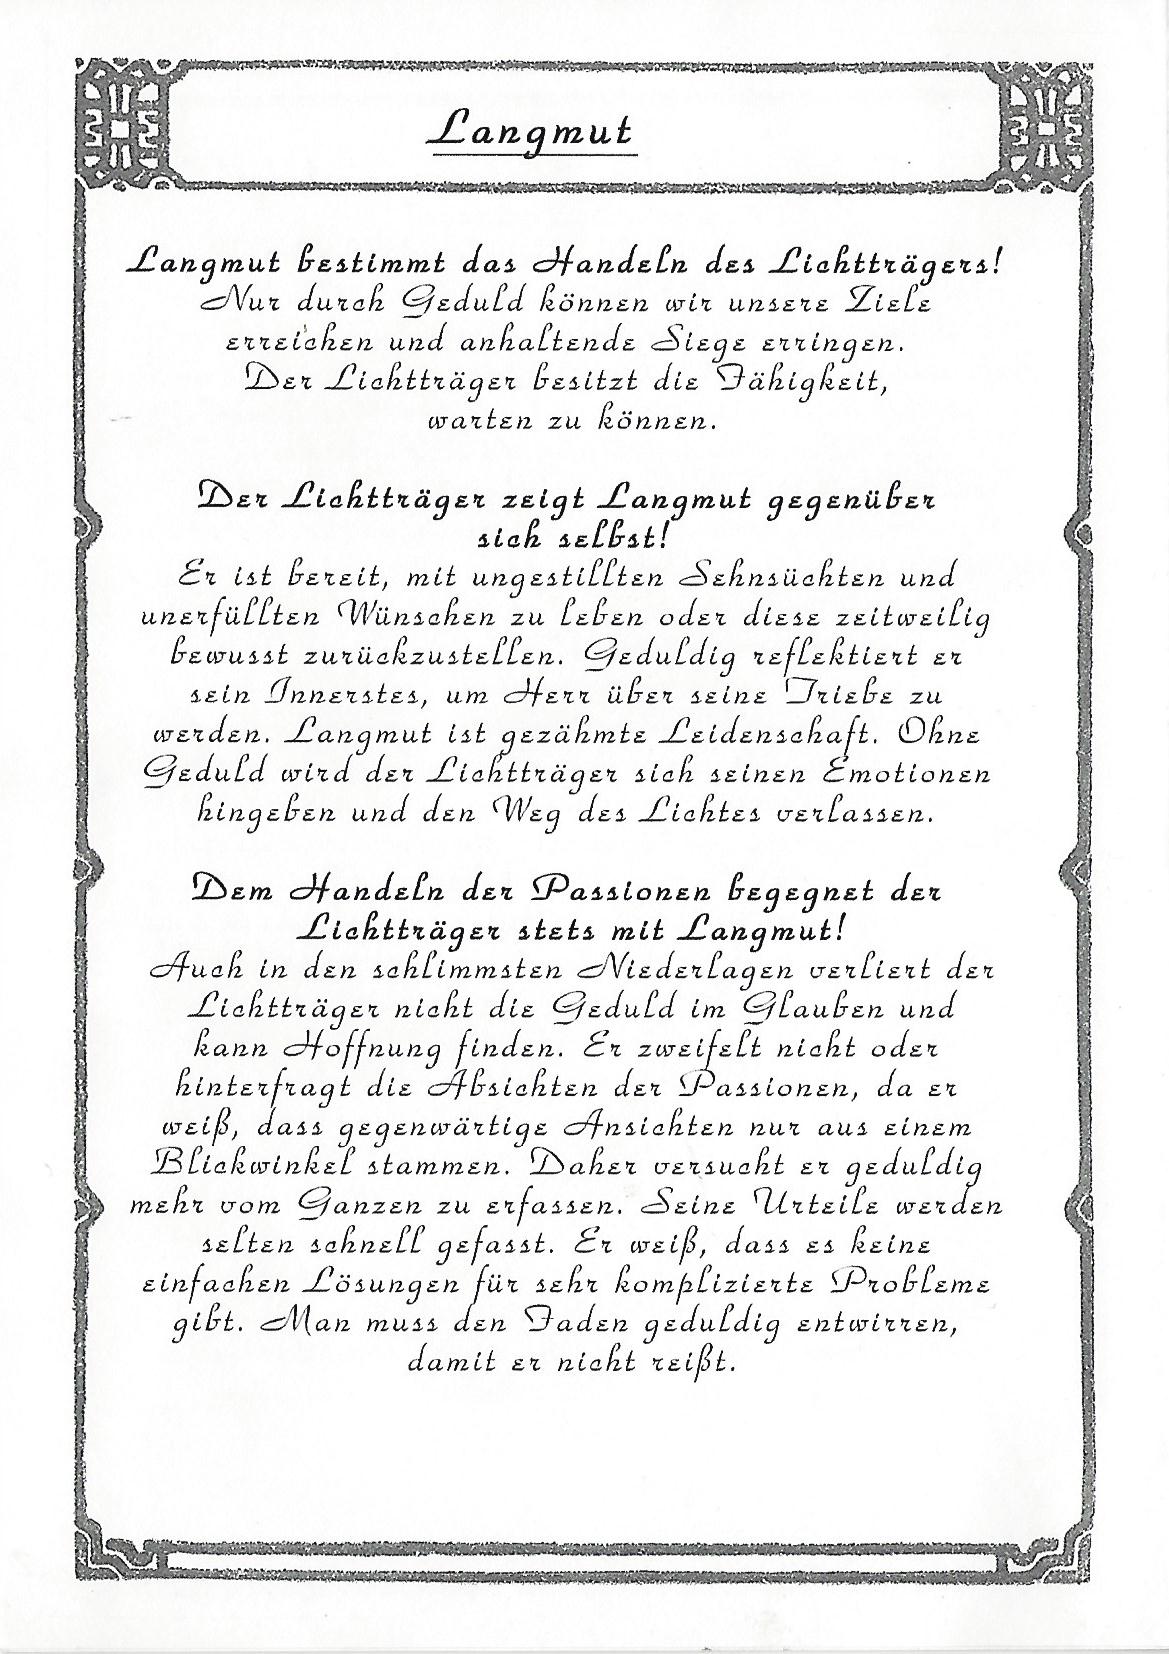 Langmut
Langmut bestimmt das Handeln des Lichtträgers!
Nur durch Geduld können wir unsere Ziele
erreichen und anhaltende Siege erringen.
Der Lichtträger besitzt die Fähigkeit,
warten zu können.
Der Lichtträger zeigt Langmut gegenüber
sich selbst!
Er ist bereit, mit ungestillten Sehnsüchten und
unerfüllten Wünschen zu leben oder diese zeitweilig
bewusst zurückzustellen. Geduldig reflektiert er
sein Innerstes, um Herr über seine Triebe zu
werden. Langmut ist gezähmte Leidenschaft. Ohne
Geduld wird der Lichtträger sich seinen Emotionen
hingeben und den Weg des Lichtes verlassen.
Dem Handeln der Passionen begegnet der
Lichtträger stets mit Langmut!
Auch in den schlimmsten Niederlagen verliert der
Lichtträger nicht die Geduld im Glauben und
kann Hoffnung finden. Er zweifelt nicht oder
hinterfragt die Absichten der Passionen, da er
weiß, dass gegenwärtige Ansichten nur aus einem
Blickwinkel stammen. Daher versucht er geduldig
mehr vom Ganzen zu erfassen. Seine Urteile werden
selten schnell gefasst. Er weiß, dass es keine
einfachen Lösungen für sehr komplizierte Probleme
gibt. Man muss den Faden geduldig entwirren,
damit er nicht reißt.